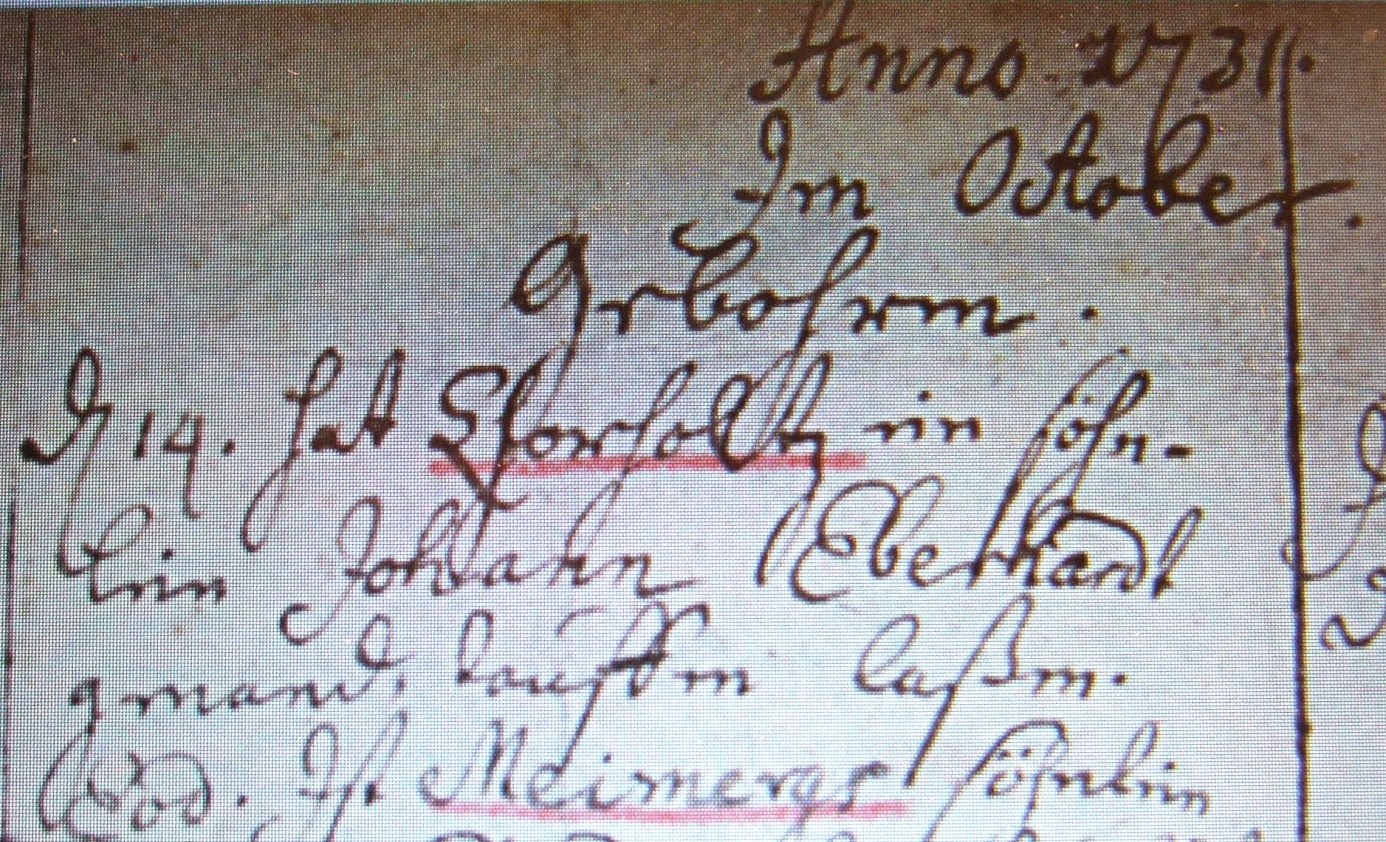 Anno 1731.
Im October.
Gebohren.
D 14. hat ein söhn-
lein Johann Eberhardt
genand, tauffen laßen.
Eod. Ist Meimergs söhnlein